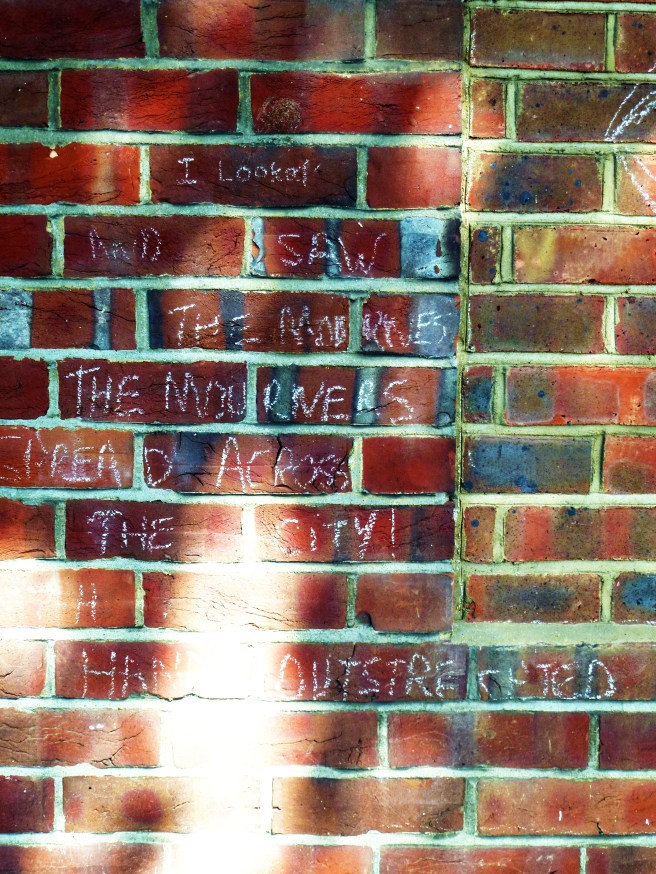 I Looked
AND SAW
THE MOURNES
THE MOURNERS
D ACROSS
THE CITY!
H
HAND OUTSTRETCHTED